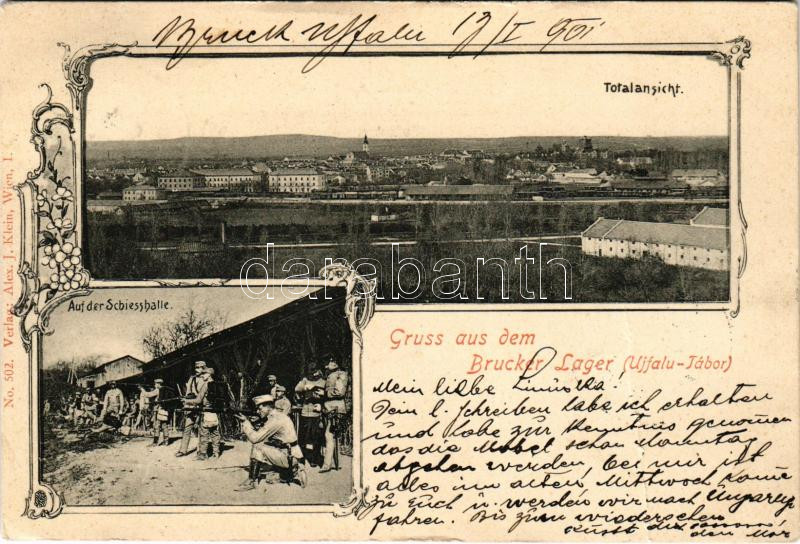 Bruck Ujfalu 19/I 901
Totalansicht.
Auf der Schiesshalle.
No. 502. Verlag: Alex. J. Klein, Wien, I.
darabanth
Gruss aus dem
Brucker Lager (Ujfalu-Tábor)
Mein liebe
Dein l. Schreiben habe ich erhalten
und habe zur Kenntnis genommen
das die Möbel schon Monntag
abgehen werden, bei mir ist
alles im alten, Mittwoch komme
zu Euch u. werden wir nach Ungarn
fahren. Bis zum wiedersehen
küsst